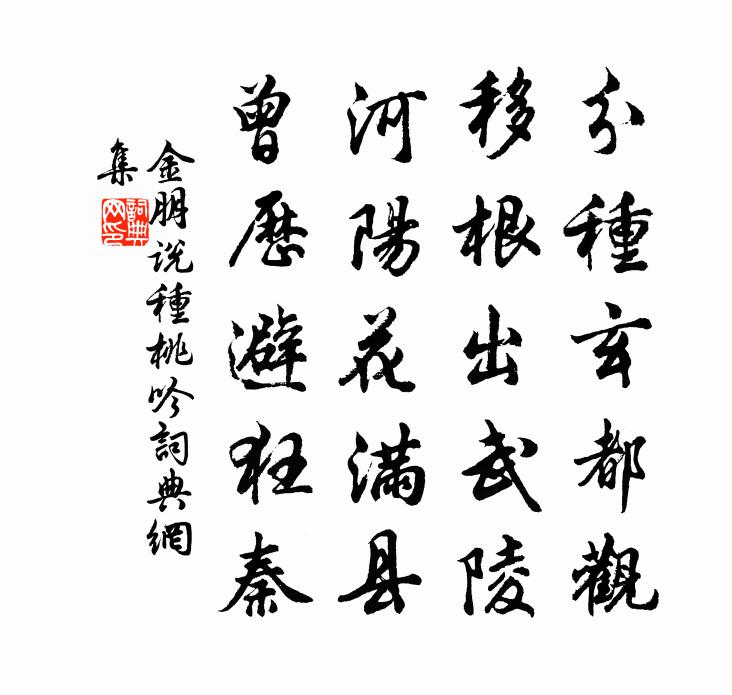 分種玄都觀
移根出武陵
河陽花滿县
曾歷避狂秦
金朋说種桃吟詞典網
集
詞典
网印